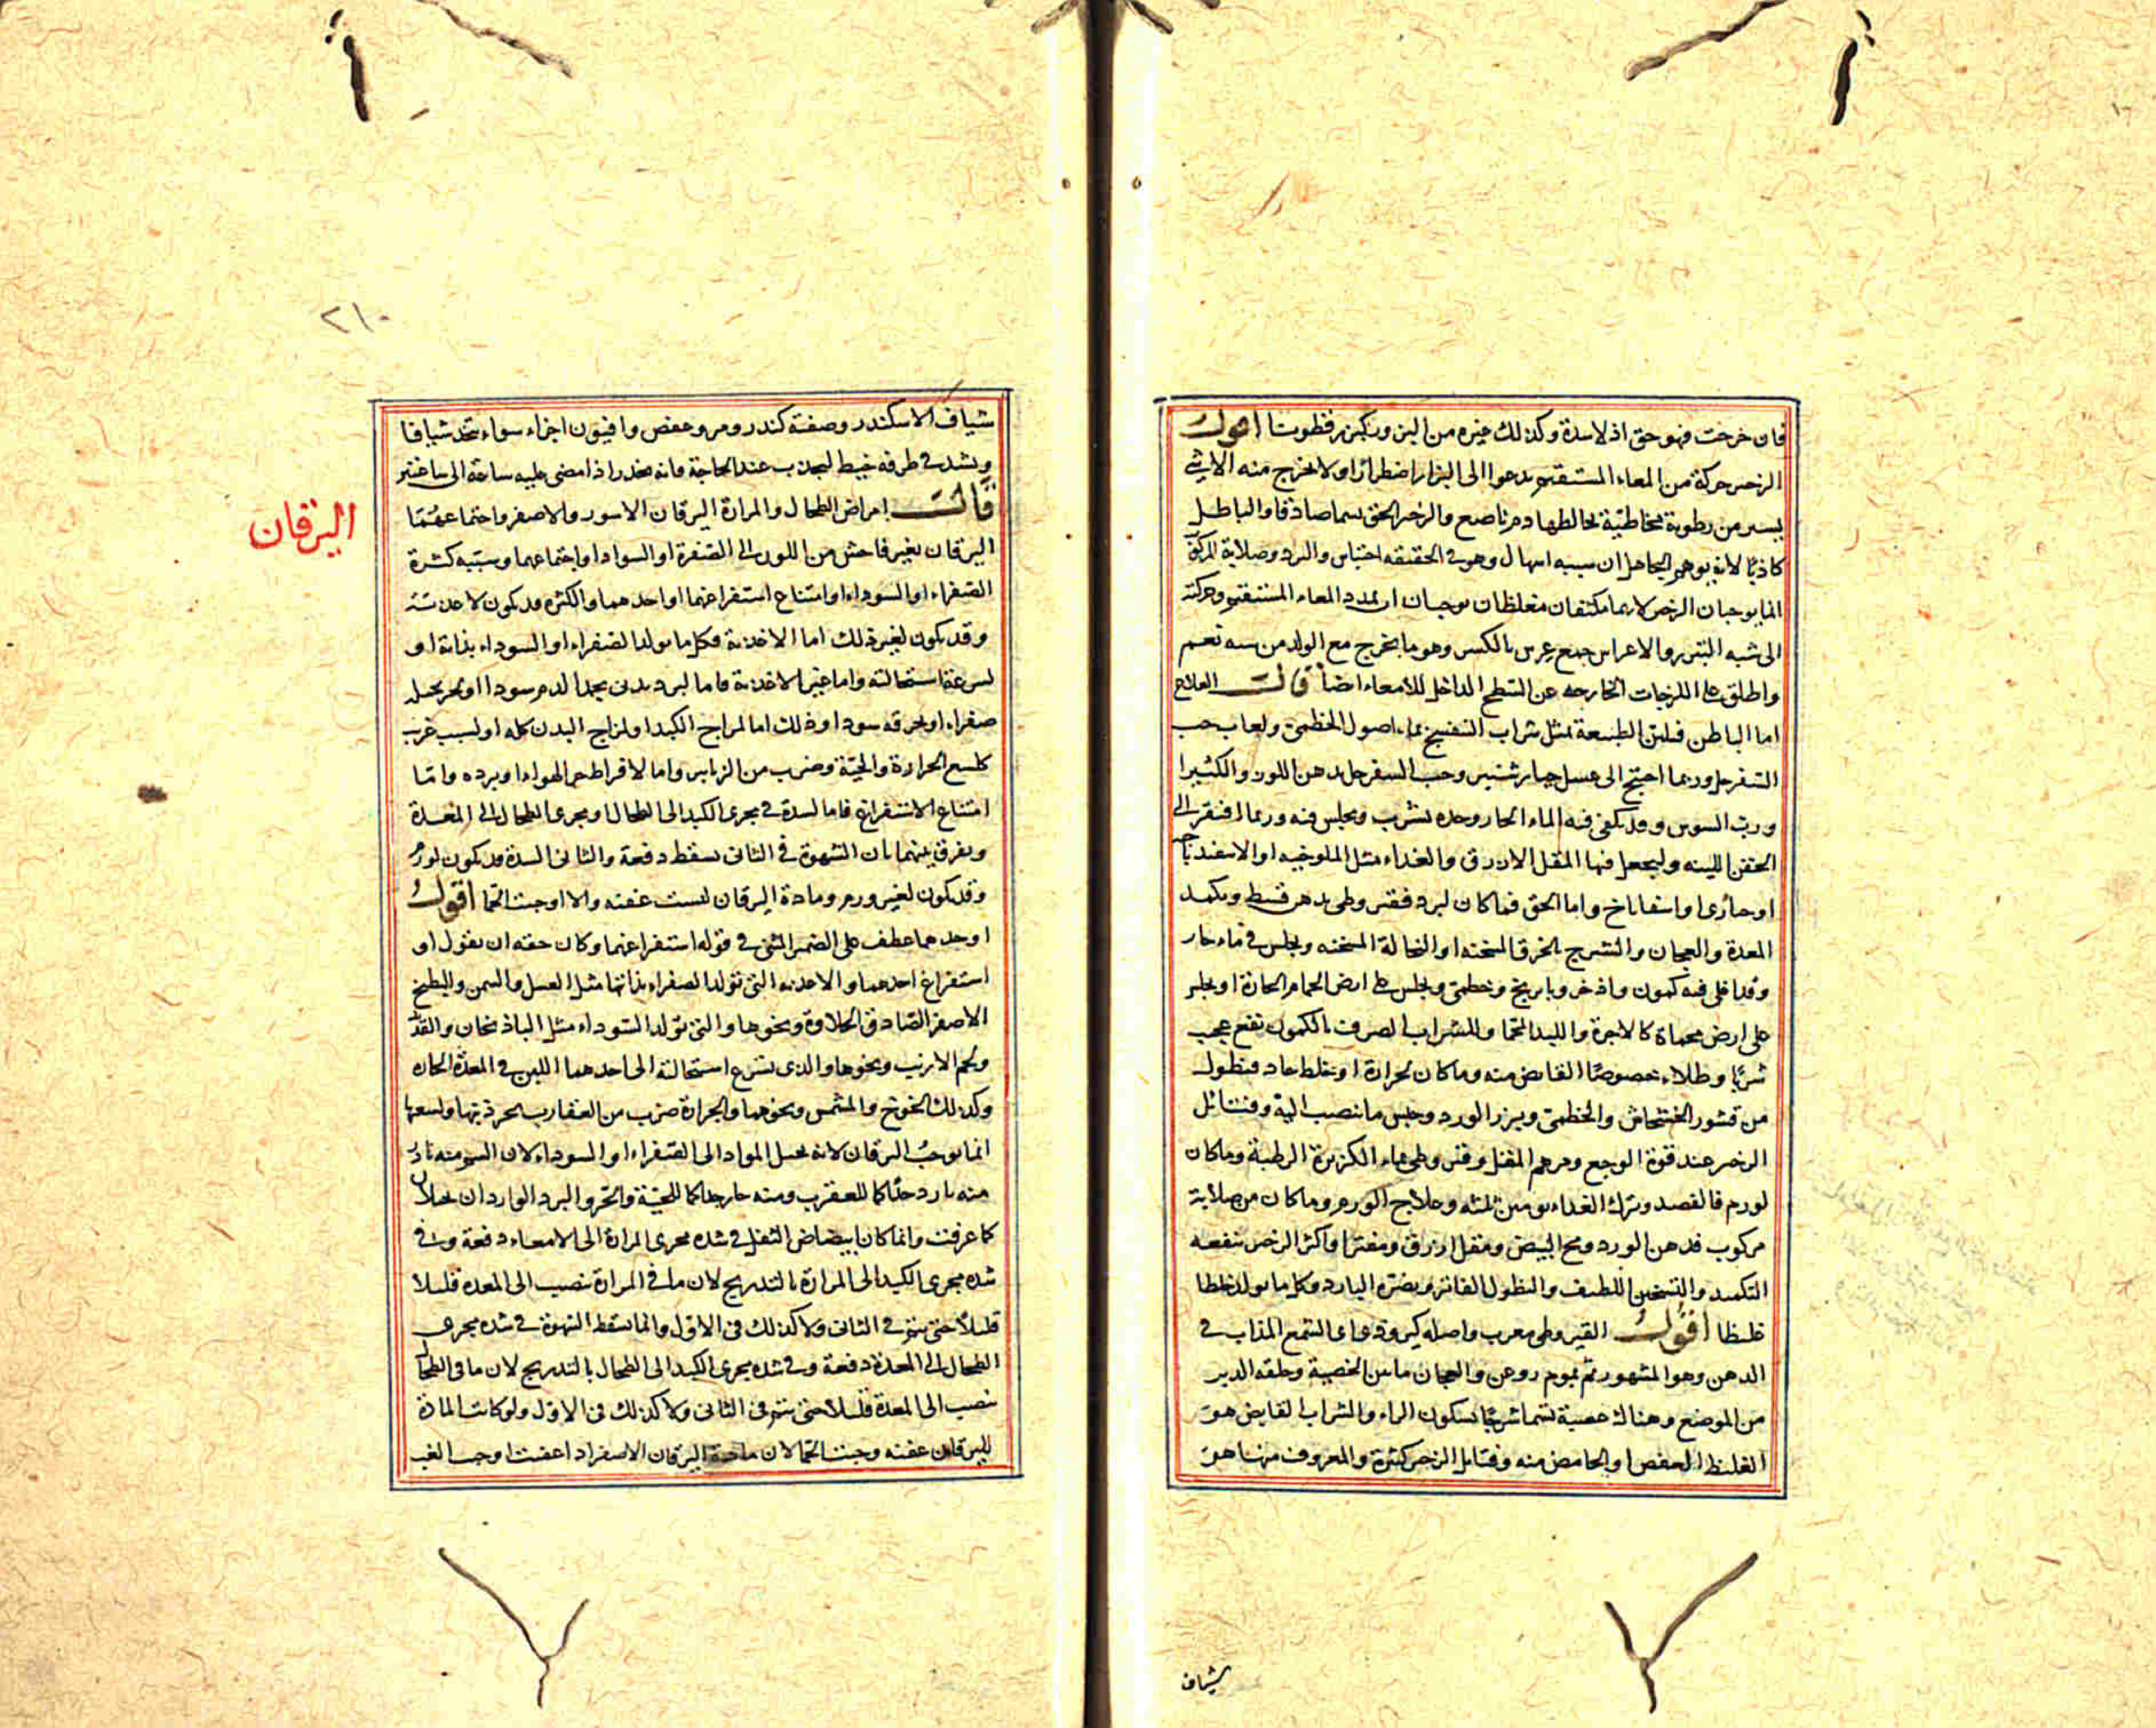 فان خرجت فهو حق اذ لا سدة وكذلك غيره من البزور كبزر قطونا اقول
الزحير حركة من المعاء المستقيم يدعوا الى البراز اضطرارا ولا يخرج منه الا شئ
يسير من رطوبة مخاطية يخالطها دم ناصع والزحير الحق يسما صادقا والباطل
كاذبا لانه يوهم الجاهل ان سببه اسهال وهو في الحقيقة احتباس والبرد وصلابة المركوب
انما يوجبان الزحير لانهما مكثفان مغلظان يوجبان تمدد المعاء المستقيم وحركته
الى شبه التبزر والاعراس جمع عرس بالكسر وهو ما يخرج مع الولد من بطن امه
واطلق على اللزجات الخارجه عن السطح الداخل للامعاء ايضا قالـــ العلاج
اما الباطن فلين الطبيعة بمثل شراب البنفسج بماء اصول الخطمى ولعاب حب
السفرجل وربما احتج الى عسل خيار شنبر وحب السفرجل بدهن اللوز والكثيرا
ورب السوس وقد يكفى فيه الماء الحار وحده يشرب ويجلس فيه وربما افتقر الى
الحقن اللينه وليجعل فيها المقل الازرق والغداء مثل الملوخيه او الاسفيدباج
او خبازى او اسفاناخ واما الحق فما كان لبرد فقيروطى بدهن قسط ويكمد
المعدة والعجان والشرج بالخرق المسخنه او النخالة المسخنه ويجلس في ماء حار
وقد اغلى فيه كمون واذخر وبابونج وخطمى ويجلس على ارض الحمام الحارة او يجلس
على ارض محماة كالاجرة واللبد المحما وللشراب الصرف بالكمون نفع عجيب
شربا وطلاء خصوصا القابض منه وما كان لحرارة او خلط حاد فنطول
من قشور الخشخاش والخطمى وبزر الورد وحبس ما ينصب اليه وفتائل
الزحير عند قوة الوجع ومرهم المقل وقيروطى بماء الكزبرة الرطبة وما كان
لورم فالفصد وترك الغداء يومين ثلثه وعلاج الورم وما كان من صلابة
مركوب فدهن الورد ومح البيض ومقل ازرق ومفترا واكثر الزحير ينفعه
التكميد والتسخين اللطيف والنطول الفاتر ويضره البارد وكل ما يولد خلطا
غليظا اقولـــ القيروطى معرب واصله كيروتى اى الشمع المذاب في
الدهن وهو المشهور بموم روغن والعجان ما بين الخصية وحلقه الدبر
من الموضع وهناك عصبة تسما شرجا بسكون الراء والشراب القابض هو
الغليظ العفص او الحامض منه وفتايل الزحير كثيرة والمعروف منها هو
شياف
٢١٠
شياف الاسكندر وصفته كندر ومر وعفص وافيون اجزاء سواء يتخذ شيافا
ويشد في طرفه خيط ليجذب عند الحاجة فانه مخدر اذا مضى عليه ساعة الى ساعتين
قالـــت امراض الطحال والمرارة اليرقان الاسود والاصفر واجتماعهما
اليرقان
اليرقان تغير فاحش من اللون الى الصفرة او السواد او اجتماعهما وسببه كثرة
الصفراء او السوداء او امتناع استفراغهما او احدهما والكثره قد تكون لاغذية
وقد تكون لغير ذلك اما الاغذية فكل ما يولد الصفراء او السوداء بذاته او
لسرعة استحالته واما غير الاغذية فاما لبرد بدنى يجمد الدم سودا او بحر يحيل
صفراء او يحرقه سودا وذلك اما لمزاج الكبد او لمزاج البدن كله او لسبب غريب
كلسع الجرارة والحية وضرب من الزنابير واما لافراط حر الهواء او برده واما
امتناع الاستفراغ فاما لسدة في مجرى الكبد الى الطحال او مجرى الطحال الى المعدة
ويفرق بينهما بان الشهوة في الثانى يسقط دفعة والثانى السدة قد تكون لورم
وقد تكون لغير ورم ومادة اليرقان ليست عفنه والا اوجبت الحما اقول
او احدهما عطف على الضمير المثنى في قوله استفراغهما وكان حقه ان يقول او
استفراغ احدهما والاغذيه التى تولد الصفراء بذاتها مثل العسل والسمن والبطيخ
الاصفر الصادق الحلاوة ونحوها والتى تولد السوداء مثل الباذنجان والقديد
ولحم الارنب ونحوها والذى يسرع استحالته الى احدهما اللبن في المعدة الحاره
وكذلك الخوخ والمشمش ونحوهما والجرارة ضرب من العقارب تجر ذنبها ولسعها
انما يوجب اليرقان لانه يحيل المواد الى الصفراء او السوداء لان السم منه نار
منه بارد جدا كما للعقرب ومنه حار جدا كما للحية والحر والبرد الواردان يحيلان
كما عرفت وانما كان ابيضاض الثفل في سده مجرى المرارة الى الامعاء دفعة وفى
سده مجرى الكبد الى المرارة بالتدريج لان ما في المرارة ينصب الى المعده قليلا
قليلا حتى يتم في الثانى ولا كذلك في الاول وانما يسقط الشهوة في سده مجرى
الطحال الى المعدة دفعة وفي سده مجرى الكبد الى الطحال بالتدريج لان ما في الطحال
ينصب الى المعدة قليلا حتى يتم في الثانى ولا كذلك في الاول ولو كانت المادة
لليرقان عفنه وجبت الحما لان مادة اليرقان الاصفر اذا عفنت اوجب الغب